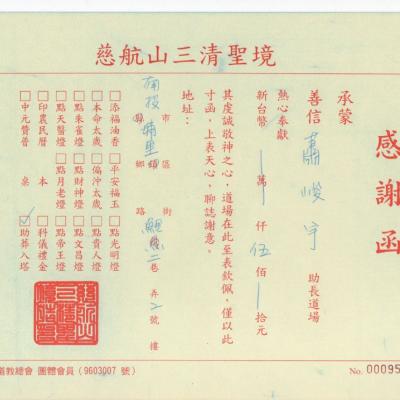 慈航山三清聖境
感謝函
承蒙
善信 蕭峻宇 助長道場
熱心奉獻
新台幣 萬 仟 伍 佰 拾元
其虔誠敬神之心,道場在此至表欽佩,僅以此
寸函,上表天心,聊誌謝意。
地址:
南投 縣 市 埔里 鄉鎮 區 路 街 巷 弄 2 號 樓
□添福油香 □平安福玉 □點光明燈
□本命太歲 □偏沖太歲 □點貴人燈
□點朱雀燈 □點財神燈 □點文昌燈
□點天醫燈 □點月老燈 □點帝王燈
□印農民曆 本 □科儀禮金
□中元贊普 桌 ☑助葬入塔
道教總會 團體會員(9603007 號)
No. 00095